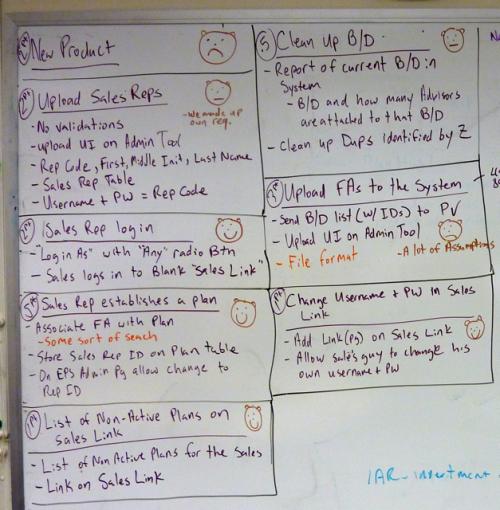 New Product
Upload Sales Reps
- we made up
own req.
- No validations
- upload UI on Admin Tool
- Rep Code, First, Middle Init, Last Name
- Sales Rep Table
- Username + PW = Rep Code
Sales Rep login
- "Login As" with "Any" radio Btn
- Sales logs in to Blank "Sales Link"
Sales Rep establishes a plan
- Associate FA with Plan
- Some sort of seach
- Store Sales Rep ID on Plan table
- On EPS Admin Pg allow change to
Rep ID
List of Non-Active Plans on
Sales Link
- List of Non Active Plans for the Sales
- Link on Sales Link
5 Clean Up B/D
- Report of current B/D in
System
- B/D and how many Advisors
are attached to that B/D
- Clean up Dups identified by Z
Upload FAs to the System
- Send B/D list (w/ IDs) to PV
- Upload UI on Admin Tool
- File format
- A lot of Assumptions
Change Username + PW in Sales
Link
- Add Link (pg) on Sales Link
- Allow sale's guy to change his
own username + PW
IAR - Investment